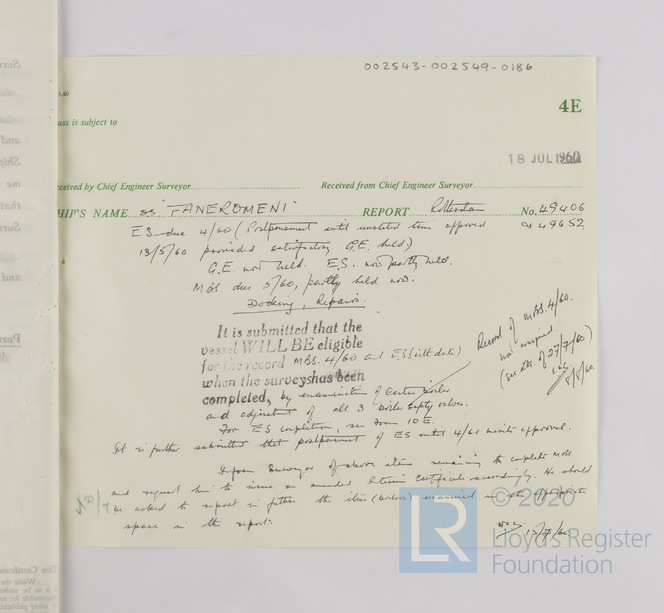 002543-002549-0186
4E
ass is subject to
18 JUL 1960
eceived by Chief Engineer Surveyor
Received from Chief Engineer Surveyor
HIP'S NAME ss 'FANEROMENI'
REPORT Rotterdam
No. 49406
49652
ES due 4/60 (Postponement until unstated time approved
13/5/60 provided satisfactory G.E. held.)
G.E. now held. E.S. now partly held.
MBS. due 5/60, partly held now.
Docking, Repairs.
It is submitted that the
vessel WILL BE eligible
for the record MBS. 4/60 and ES (with date)
when the surveys has been
completed, by examination of Center boiler
and adjustment of all 3 boiler safety valves.
For ES completion, see Form 10E.
Record of MBS. 4/60.
not required.
(see of 27/7/60)
5/8/60
It is further submitted that postponement of ES until 4/61 merits approval.
Inform Surveyor of above items remaining to complete MBS
and request him to issue an amended Interim Certificate accordingly. He should
be asked to report in future the items (boilers) examined in the appropriate
space in the report.
15/7/60
© 2020
LR
Lloyd's Register
Foundation